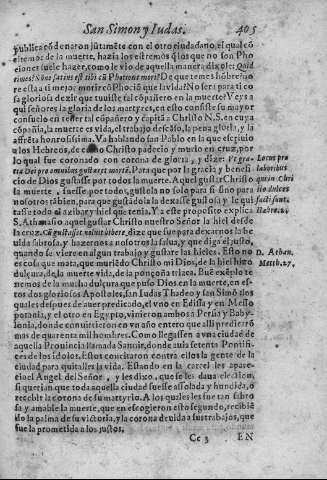 San Simon y Iudas. 405
publica cõdenaron jũtamẽte con el otro ciudadano, el qual cõ
el temor de la muerte, hazia los estremos q̃ los que no son Pho
ciones suele hazer, como le vio de aquella manera dixole: Quid
times? Nõne satius est tibi cũ Phocione mori? De que temes hõbre? no
te està a ti mejor morir cõ Phociõ que la vida? No será para ti co
sa gloriosa dezir que tuuiste tal cõpañero en la muerte? Veys a
qui señores la gloria de los martyres, en esto consiste su mayor
consuelo en tener tal cõpañero y capitã a Christo N.S. en cuya
cõpañia, la muerte es vida, el trabajo descãso, la pena gloria, y la
affrẽta honrosissima. Va hablando san Pablo en la que escriuio
a los Hebreos, de Christo padecio y murio en cruz, por
lo qual fue coronado con corona de gloria, y dize: Vt gra-
tia Dei pro omnibus gustaret mortẽ. Para que por la gracia y benefi
cio de Dios gustasse por todos la muerte. Aquel gustar Christo
la muerte, fuesse por todos, gustola no solo para si sino para
nosotros tãbien, para que gustãdola la dexasse gustosa y le qui
tasse todo el azibar y hiel que tenia. Y a este proposito explica
S. Athanasio aquel gustar Christo nuestro Señor la hiel desde
la cruz. Cũ gustasset noluit bibere, dize que fue para dexarnos la be
uida sabrosa, y hazernos a nosotros la salua, y que diga el justo,
quando se viere en algun trabajo y gustare las hieles. Esto no
es cosa que mata, que muriẽdo Christo mi Dios, de la hiel hizo
dulçura, de la muerte vida, de la ponçoña triaca. Buẽ exẽplo te
nemos de la mucha dulçura que puso Dios en la muerte, en es-
tos dos gloriosos Apostoles, san Iudas Thadeo y san Simõ, a los
quales despues de auer predicado, el vno en Edissa y en Meso
potamia, y el otro en Egypto, vinieron ambos a Persia y Baby-
lonia, donde conuirtieron en vn año entero que alli predicarõ
mas de quarenta mil hombres. Como llegassen a vna ciudad de
aquella Prouincia llamada Sannir, donde auia setenta Pontifi-
ces de los idolos. Estos concitaron contra ellos la gente de la
ciudad para quitalles la vida. Estando en la carcel les apare-
cio el Angel del Señor, y les dixo, que se les daua election,
si querian que toda aquella ciudad fuesse assolada y hundida, o
recebir la corona de su martyrio. A los quales les fue tan sabro
sa y amable la muerte, que en escogieron esto segundo, recibiẽ
do la palma de su victoria, y la corona deuida a sus trabajos, que
fue la prometida a los justos.
Cc 3 EN
Locus pro
laboribus
quia in Chri
sto dulces
facti sunt.
Hebre. 2,
D. Athan.
Matth. 27,